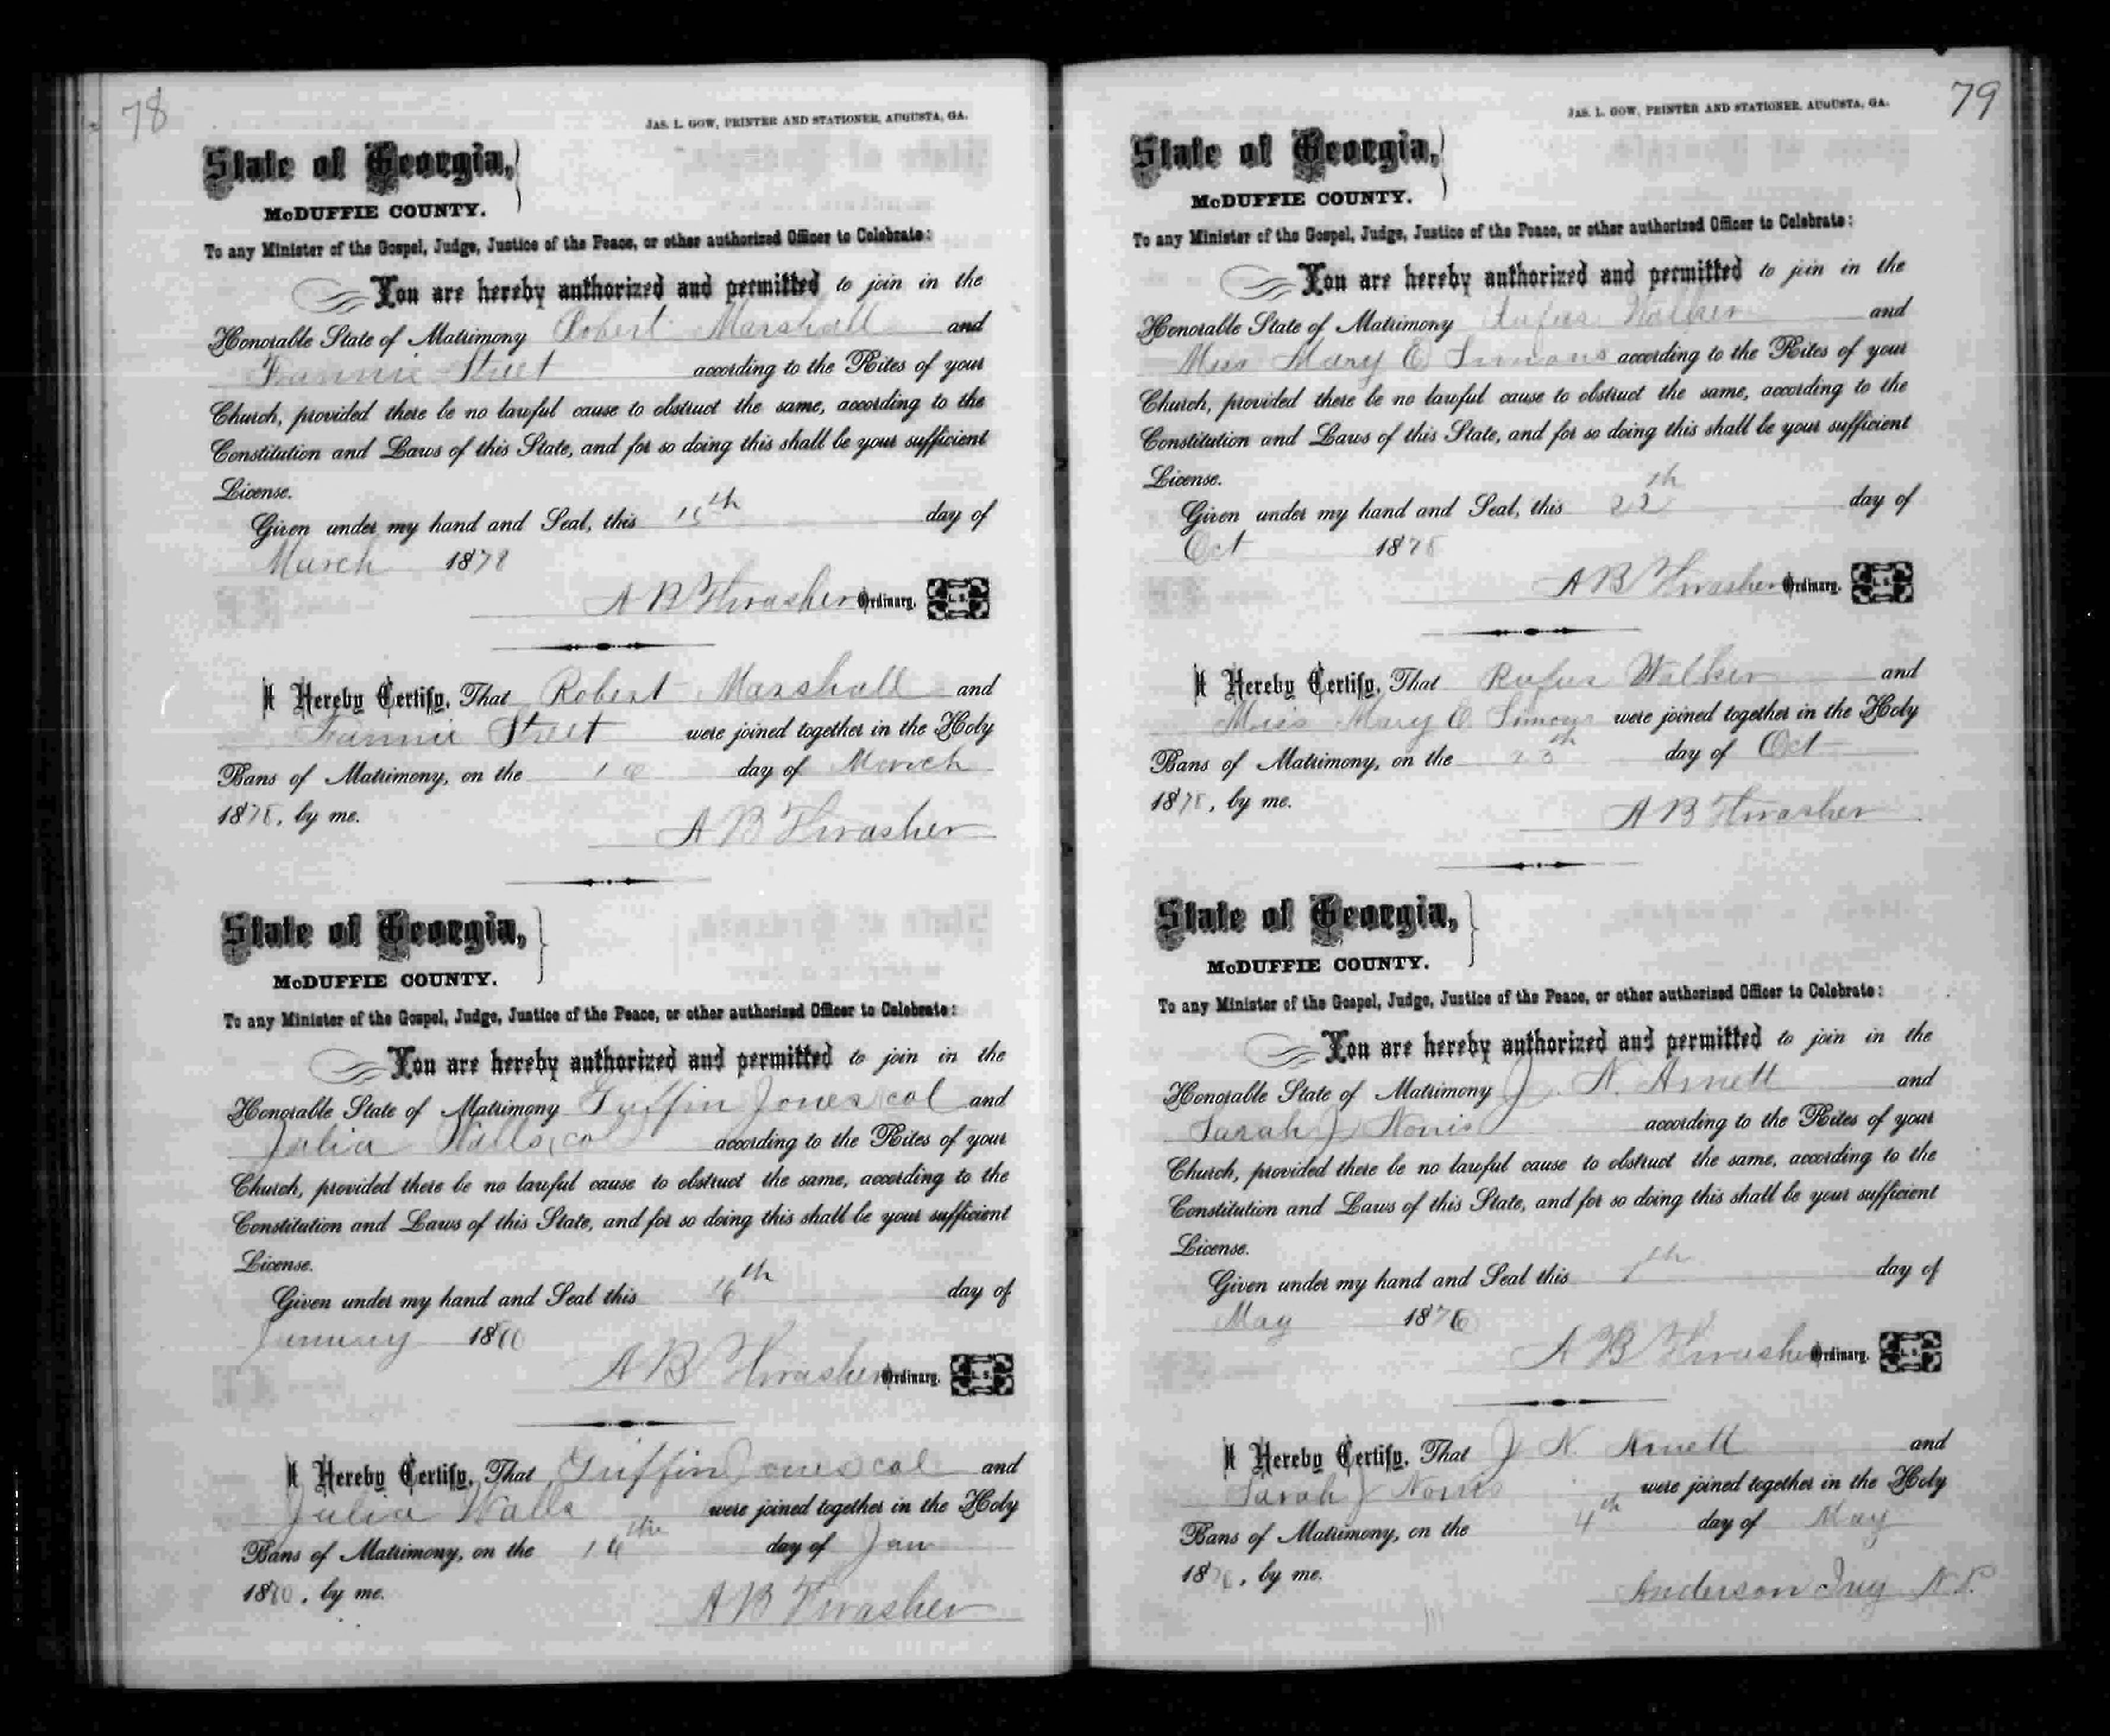 78
JAS. L. GOW, PRINTER AND STATIONER, AUGUSTA, GA.
State of Georgia,
McDUFFIE COUNTY.
To any Minister of the Gospel, Judge, Justice of the Peace, or other authorized Officer to Celebrate:
You are hereby authorized and permitted to join in the
Honorable State of Matrimony Robert Marshall and
Fannie Street according to the Rites of your
Church, provided there be no lawful cause to obstruct the same, according to the
Constitution and Laws of this State, and for so doing this shall be your sufficient
License.
Given under my hand and Seal, this 15th day of
March 1878
A B Thrasher Ordinary. L. S.
I Hereby Certify, That Robert Marshall and
Fannie Street were joined together in the Holy
Bans of Matrimony, on the day of March
1878, by me.
A B Thrasher
State of Georgia,
McDUFFIE COUNTY.
To any Minister of the Gospel, Judge, Justice of the Peace, or other authorized Officer to Celebrate:
You are hereby authorized and permitted to join in the
Honorable State of Matrimony Griffin Jones col and
Julia Walls, co according to the Rites of your
Church, provided there be no lawful cause to obstruct the same, according to the
Constitution and Laws of this State, and for so doing this shall be your sufficient
License.
Given under my hand and Seal this 16th day of
January 1880
A B Thrasher Ordinary. L. S.
I Hereby Certify, That Griffin Jones col and
Julia Walls were joined together in the Holy
Bans of Matrimony, on the 16th day of Jan
1880, by me.
A B Thrasher
79
JAS. L. GOW, PRINTER AND STATIONER, AUGUSTA, GA.
State of Georgia,
McDUFFIE COUNTY.
To any Minister of the Gospel, Judge, Justice of the Peace, or other authorized Officer to Celebrate:
You are hereby authorized and permitted to join in the
Honorable State of Matrimony Rufus Walker and
Miss Mary E Simons according to the Rites of your
Church, provided there be no lawful cause to obstruct the same, according to the
Constitution and Laws of this State, and for so doing this shall be your sufficient
License.
Given under my hand and Seal, this 22th day of
Oct 1878
A B Thrasher Ordinary. L. S.
I Hereby Certify, That Rufus Walker and
Miss Mary E. Simons were joined together in the Holy
Bans of Matrimony, on the 23th day of Oct
1878, by me.
A B Thrasher
State of Georgia,
McDUFFIE COUNTY.
To any Minister of the Gospel, Judge, Justice of the Peace, or other authorized Officer to Celebrate:
You are hereby authorized and permitted to join in the
Honorable State of Matrimony J. N. Arnett and
Sarah J Norris according to the Rites of your
Church, provided there be no lawful cause to obstruct the same, according to the
Constitution and Laws of this State, and for so doing this shall be your sufficient
License.
Given under my hand and Seal this day of
May 1876
A B Thrasher Ordinary. L. S.
I Hereby Certify, That J N. Arnett and
Sarah J Norris were joined together in the Holy
Bans of Matrimony, on the 4th day of May
1876, by me.
Anderson N. P.